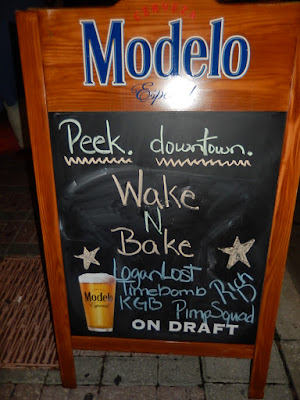 CERVEZA
Modelo
Especial
Peek. downtown.
Wake
N
Bake
LoganLost
Timebomb Rig
KGB PimpSquad
Modelo
Especial
ON DRAFT